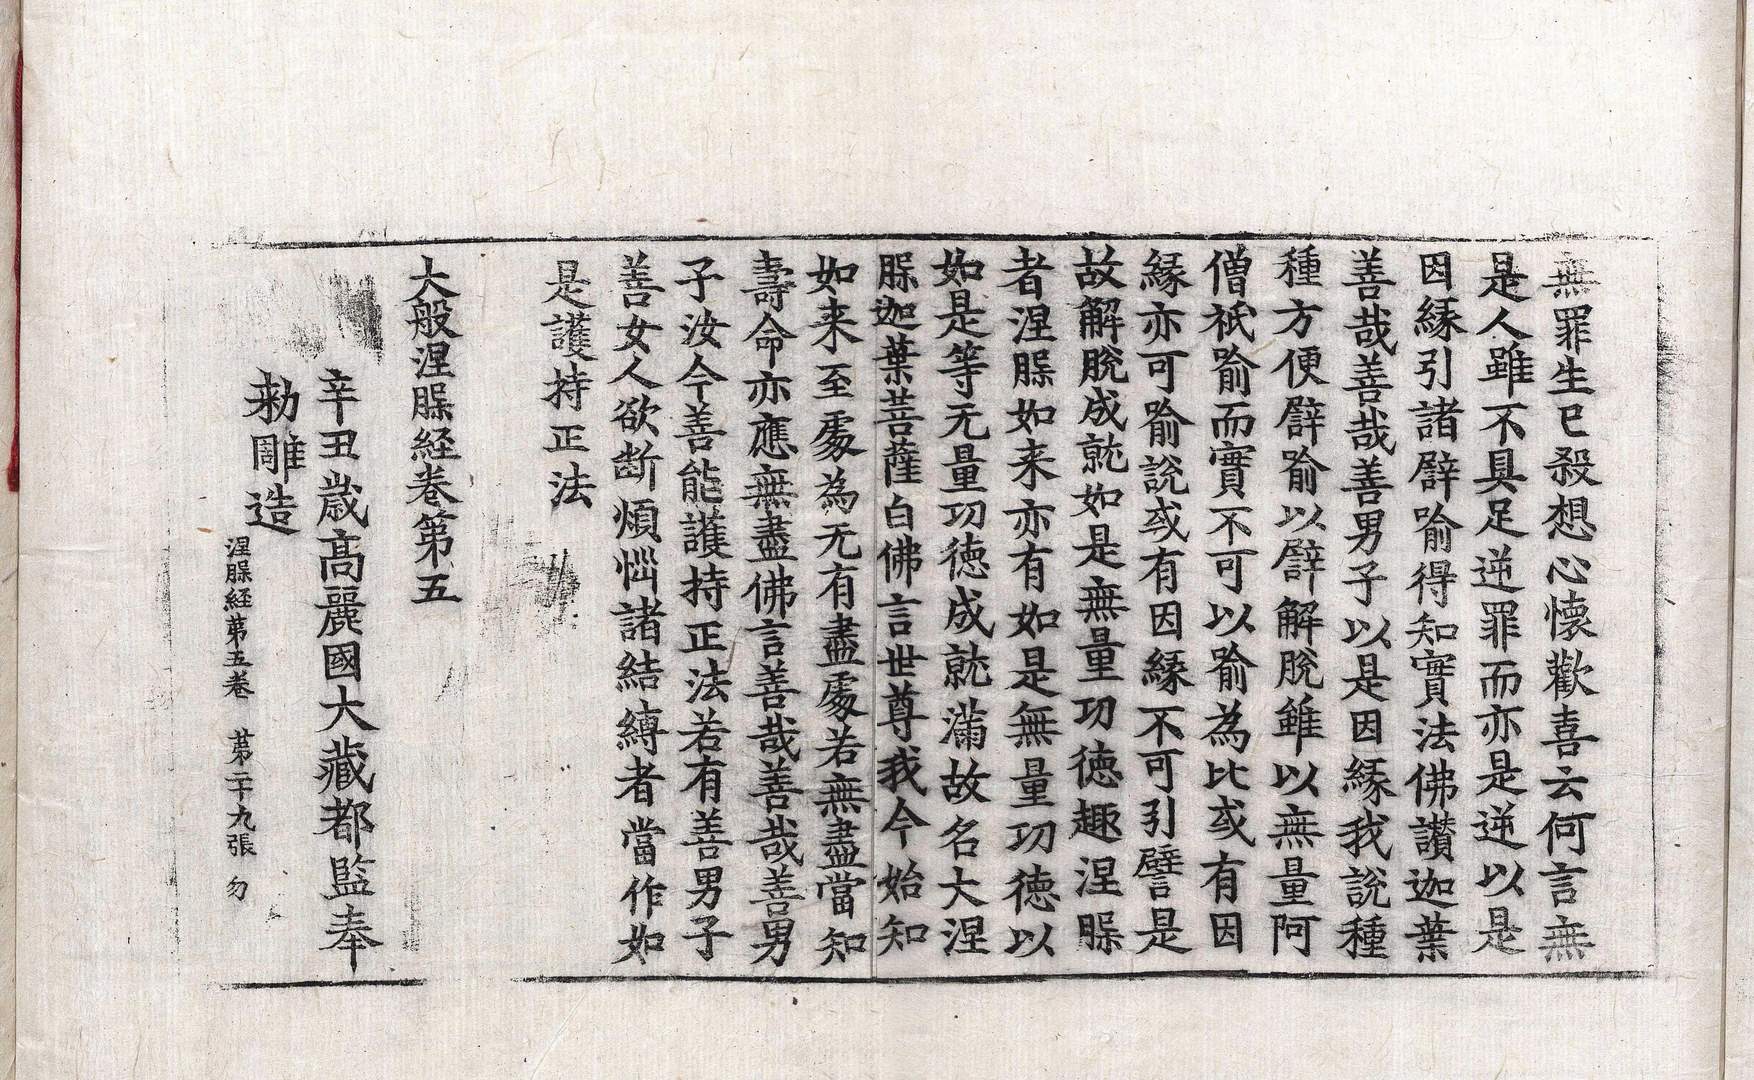 無罪生已殺想心懷歡喜云何言無
是人雖不具足逆罪而亦是逆以是
因緣引諸譬喻得知實法佛讚迦葉
善哉善哉善男子以是因緣我說種
種方便譬喻以譬解脫雖以無量阿
僧祇喻而實不可以喻為比或有因
緣亦可喻說或有因緣不可引譬是
故解脫成就如是無量功德趣涅槃
者涅槃如来亦有如是無量功德以
如是等无量功德成就滿故名大涅
槃迦葉菩薩白佛言世尊我今始知
如来至處為无有盡處若無盡當知
壽命亦應無盡佛言善哉善哉善男
子汝今善能護持正法若有善男子
善女人欲斷煩惱諸結縛者當作如
是護持正法
大般涅槃経卷第五
辛丑歲高麗國大藏都監奉
勑雕造
涅槃経第五卷 第二十九張 勿